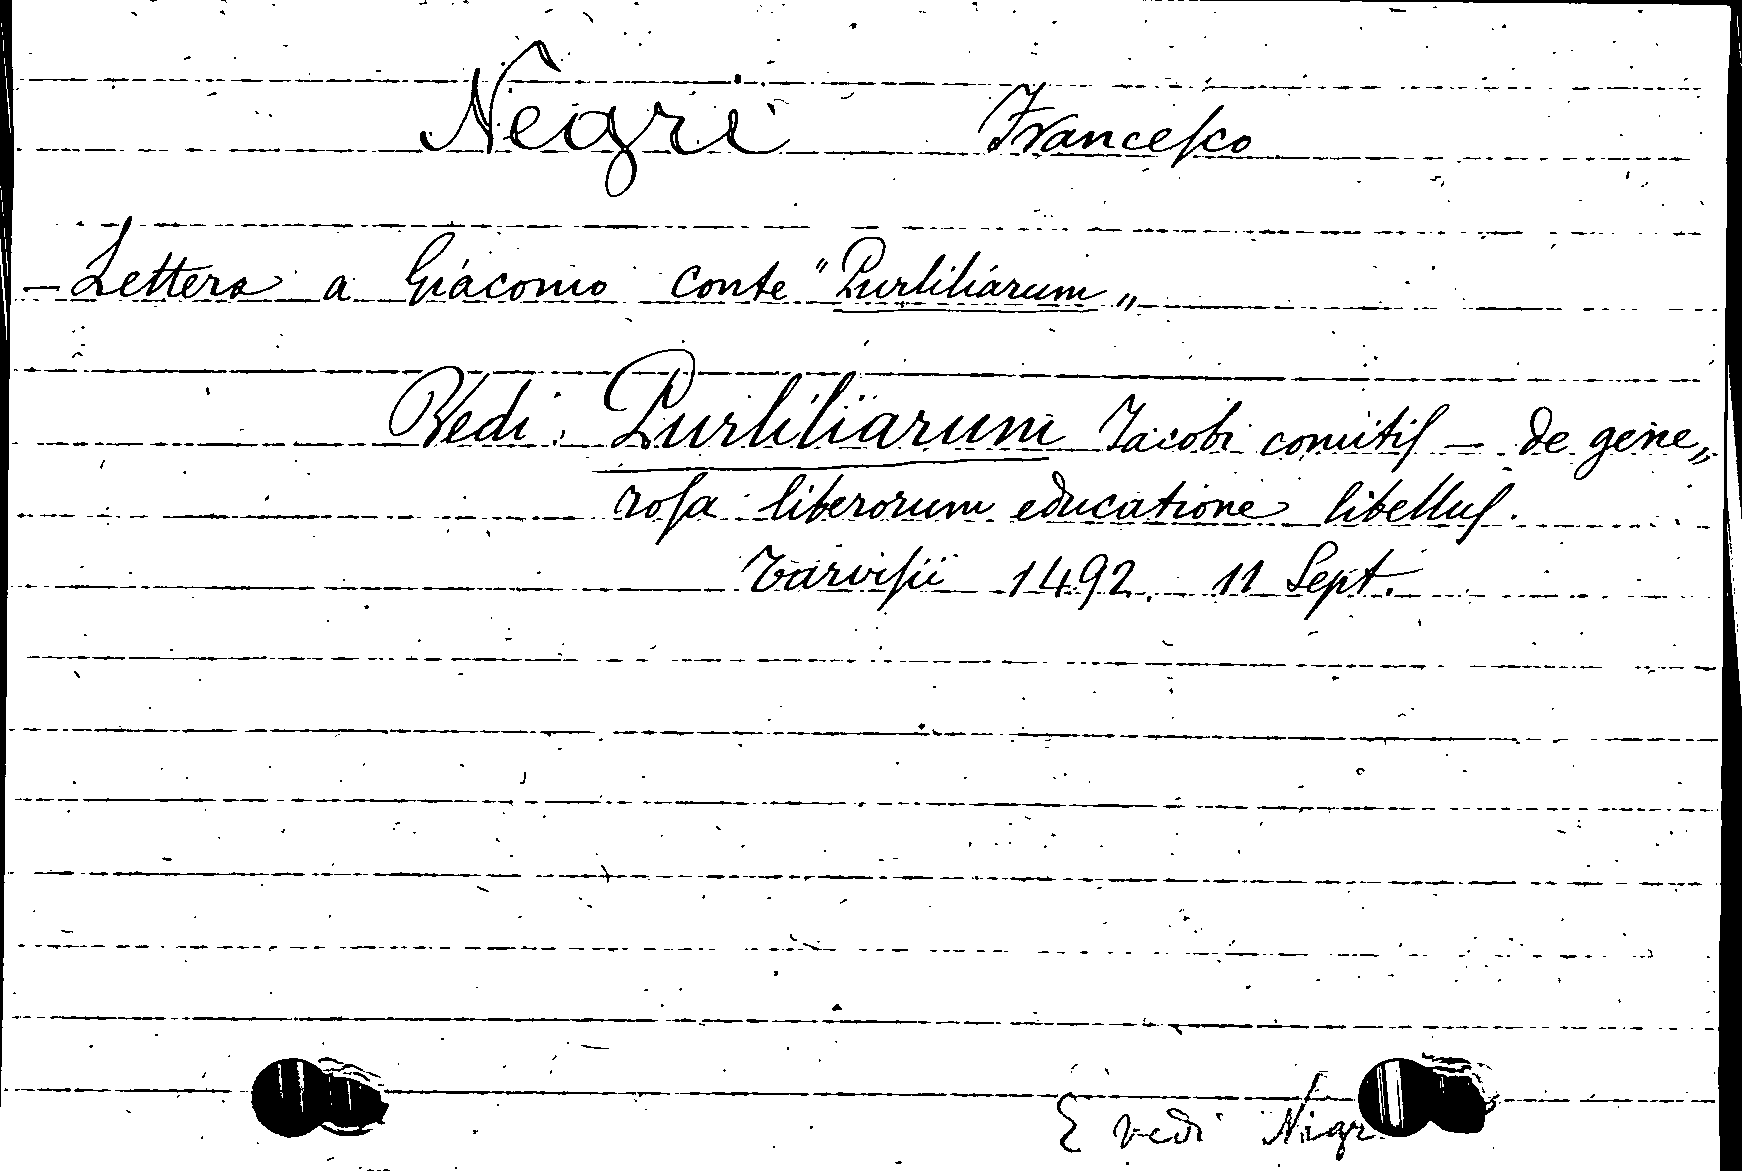 Negri Francesco
- Lettera a Giacomo conte "Purliliarum„
Vedi: Purliliarum Jacobi comitis – de gene„
rosa liberorum educatione libellus.
Tarvisii 1492. 11 Sept.
E vedi Nigr